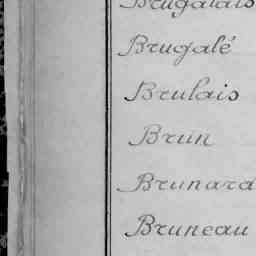 Brugalais
Brugalé
Brulais
Brun
Brunard
Bruneau